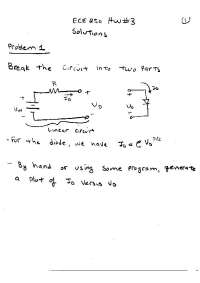 ECE 250 HW#3
Solutions
Problem 1
Break the circuit into two parts
R
I_D
+
V_D
-
Linear circuit
- For the diode, we have I_D = V_D^3/2
- By hand or using some program, generate
a plot of I_D versus V_D